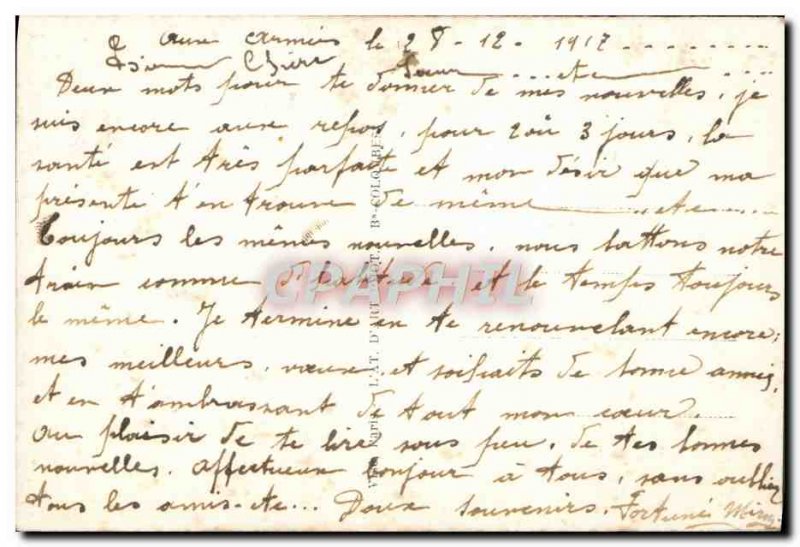 aux armées le 28-12-1917........
Bien Chère Sœur ... etc ......
Deux mots pour te donner de mes nouvelles, je
suis encore aux repos, pour 2 où 3 jours, la
santé est très parfaite et mon désir que ma
présente t'en trouve de même ......etc......
Toujours les mêmes nouvelles, nous battons notre
train comme d'habitude, et le temps toujours
le même. Je termine en te renouvelant encore;
mes meilleurs, vœux, et soihaits de bonne année,
et en t'ambrassant de tout mon cœur.
au plaisir de te lire sous peu, de tes bonnes
nouvelles. affectueux bonjour à tous, sans oublier
tous les amis-etc... Doux souvenirs. Fortuné
LAT. D'ART
COLOMBES
CPAPHIL